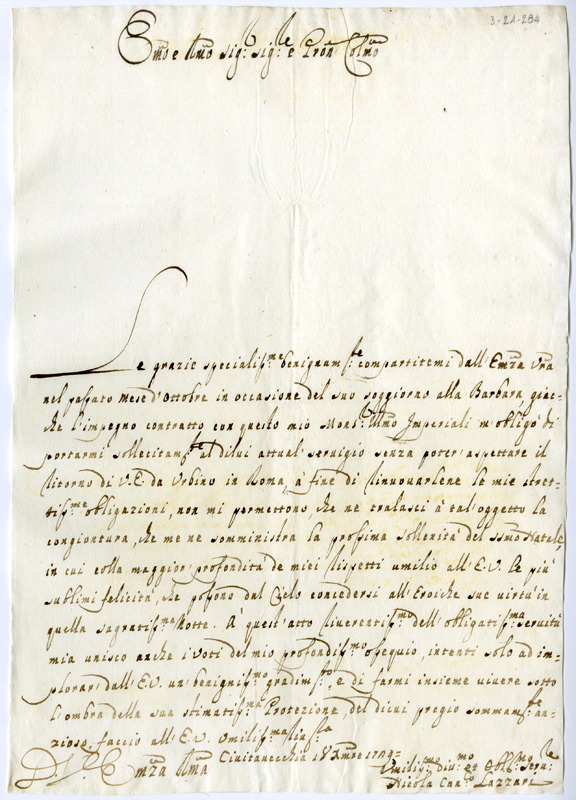 3-21-284
Emo e Rmo Sig.r Sig.re e Pron Colmo
Le grazie specialiss.me benignam.te compartitemi dall'Emza Vra
nel passato Mese d'Ottobre in occasione del suo soggiorno alla Barbara, giac=
che l'impegno contratto con questo mio Mons.r Illmo Imperiali m'obligò di
portarmi sollecitam.te al dilui attual servigio senza poter aspettare il
ritorno di V.E. da Urbino in Roma, à fine di rinuovarlene le mie stret=
tiss.me obligazioni, non mi permettono, che ne tralasci à tal'oggetto la
congiontura, che me ne somministra la prossima sollenità del Ssmo Natale,
in cui colla maggior profondità de miei rispetti umilio all'E.V. le più
sublimi felicità, che possono dal Cielo concedersi all'Eroiche sue virtù in
quella sagratiss.ma Notte. A quest'atto riverentiss.mo dell'obligatiss.ma servitù
mia unisco anche i voti del mio profondiss.mo ossequio, intenti solo ad im=
plorar dall'E.V. un benigniss.mo gradim.to, e di farmi insieme vivere sotto
l'ombra della sua stimatiss.ma Protezione, del dicui pregio sommam.te an=
zioso, faccio all'E.V. umiliss.ma
Civitavecchia 18 Xmbre
D. V.ra Emza Rma
Umiliss.mo Div.mo et Obl.mo Serv.re
Nicola Can.co Lazzari